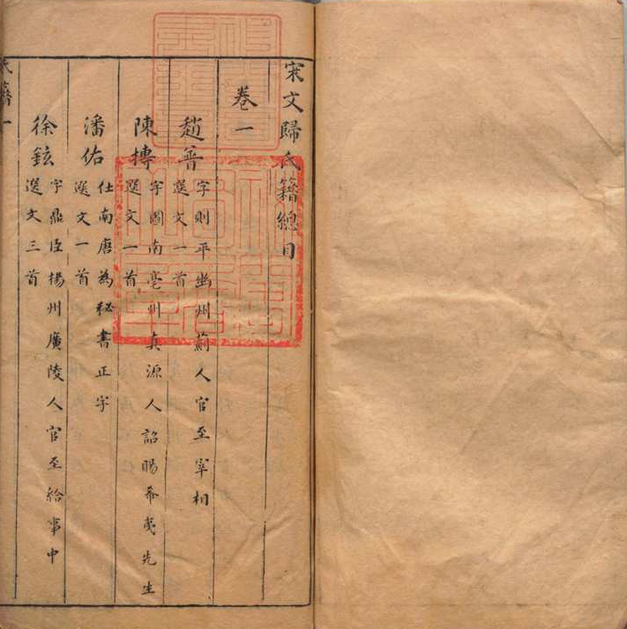 宋文歸氏籍總目
卷一
趙普 字則平幽州薊人官至宰相
選文一首
陳摶 字圖南亳州真源人詔賜希夷先生
選文一首
潘佑 仕南唐為秘書正字
選文一首
徐鉉 字鼎臣揚州廣陵人官至給事中
選文三首
氏籍一